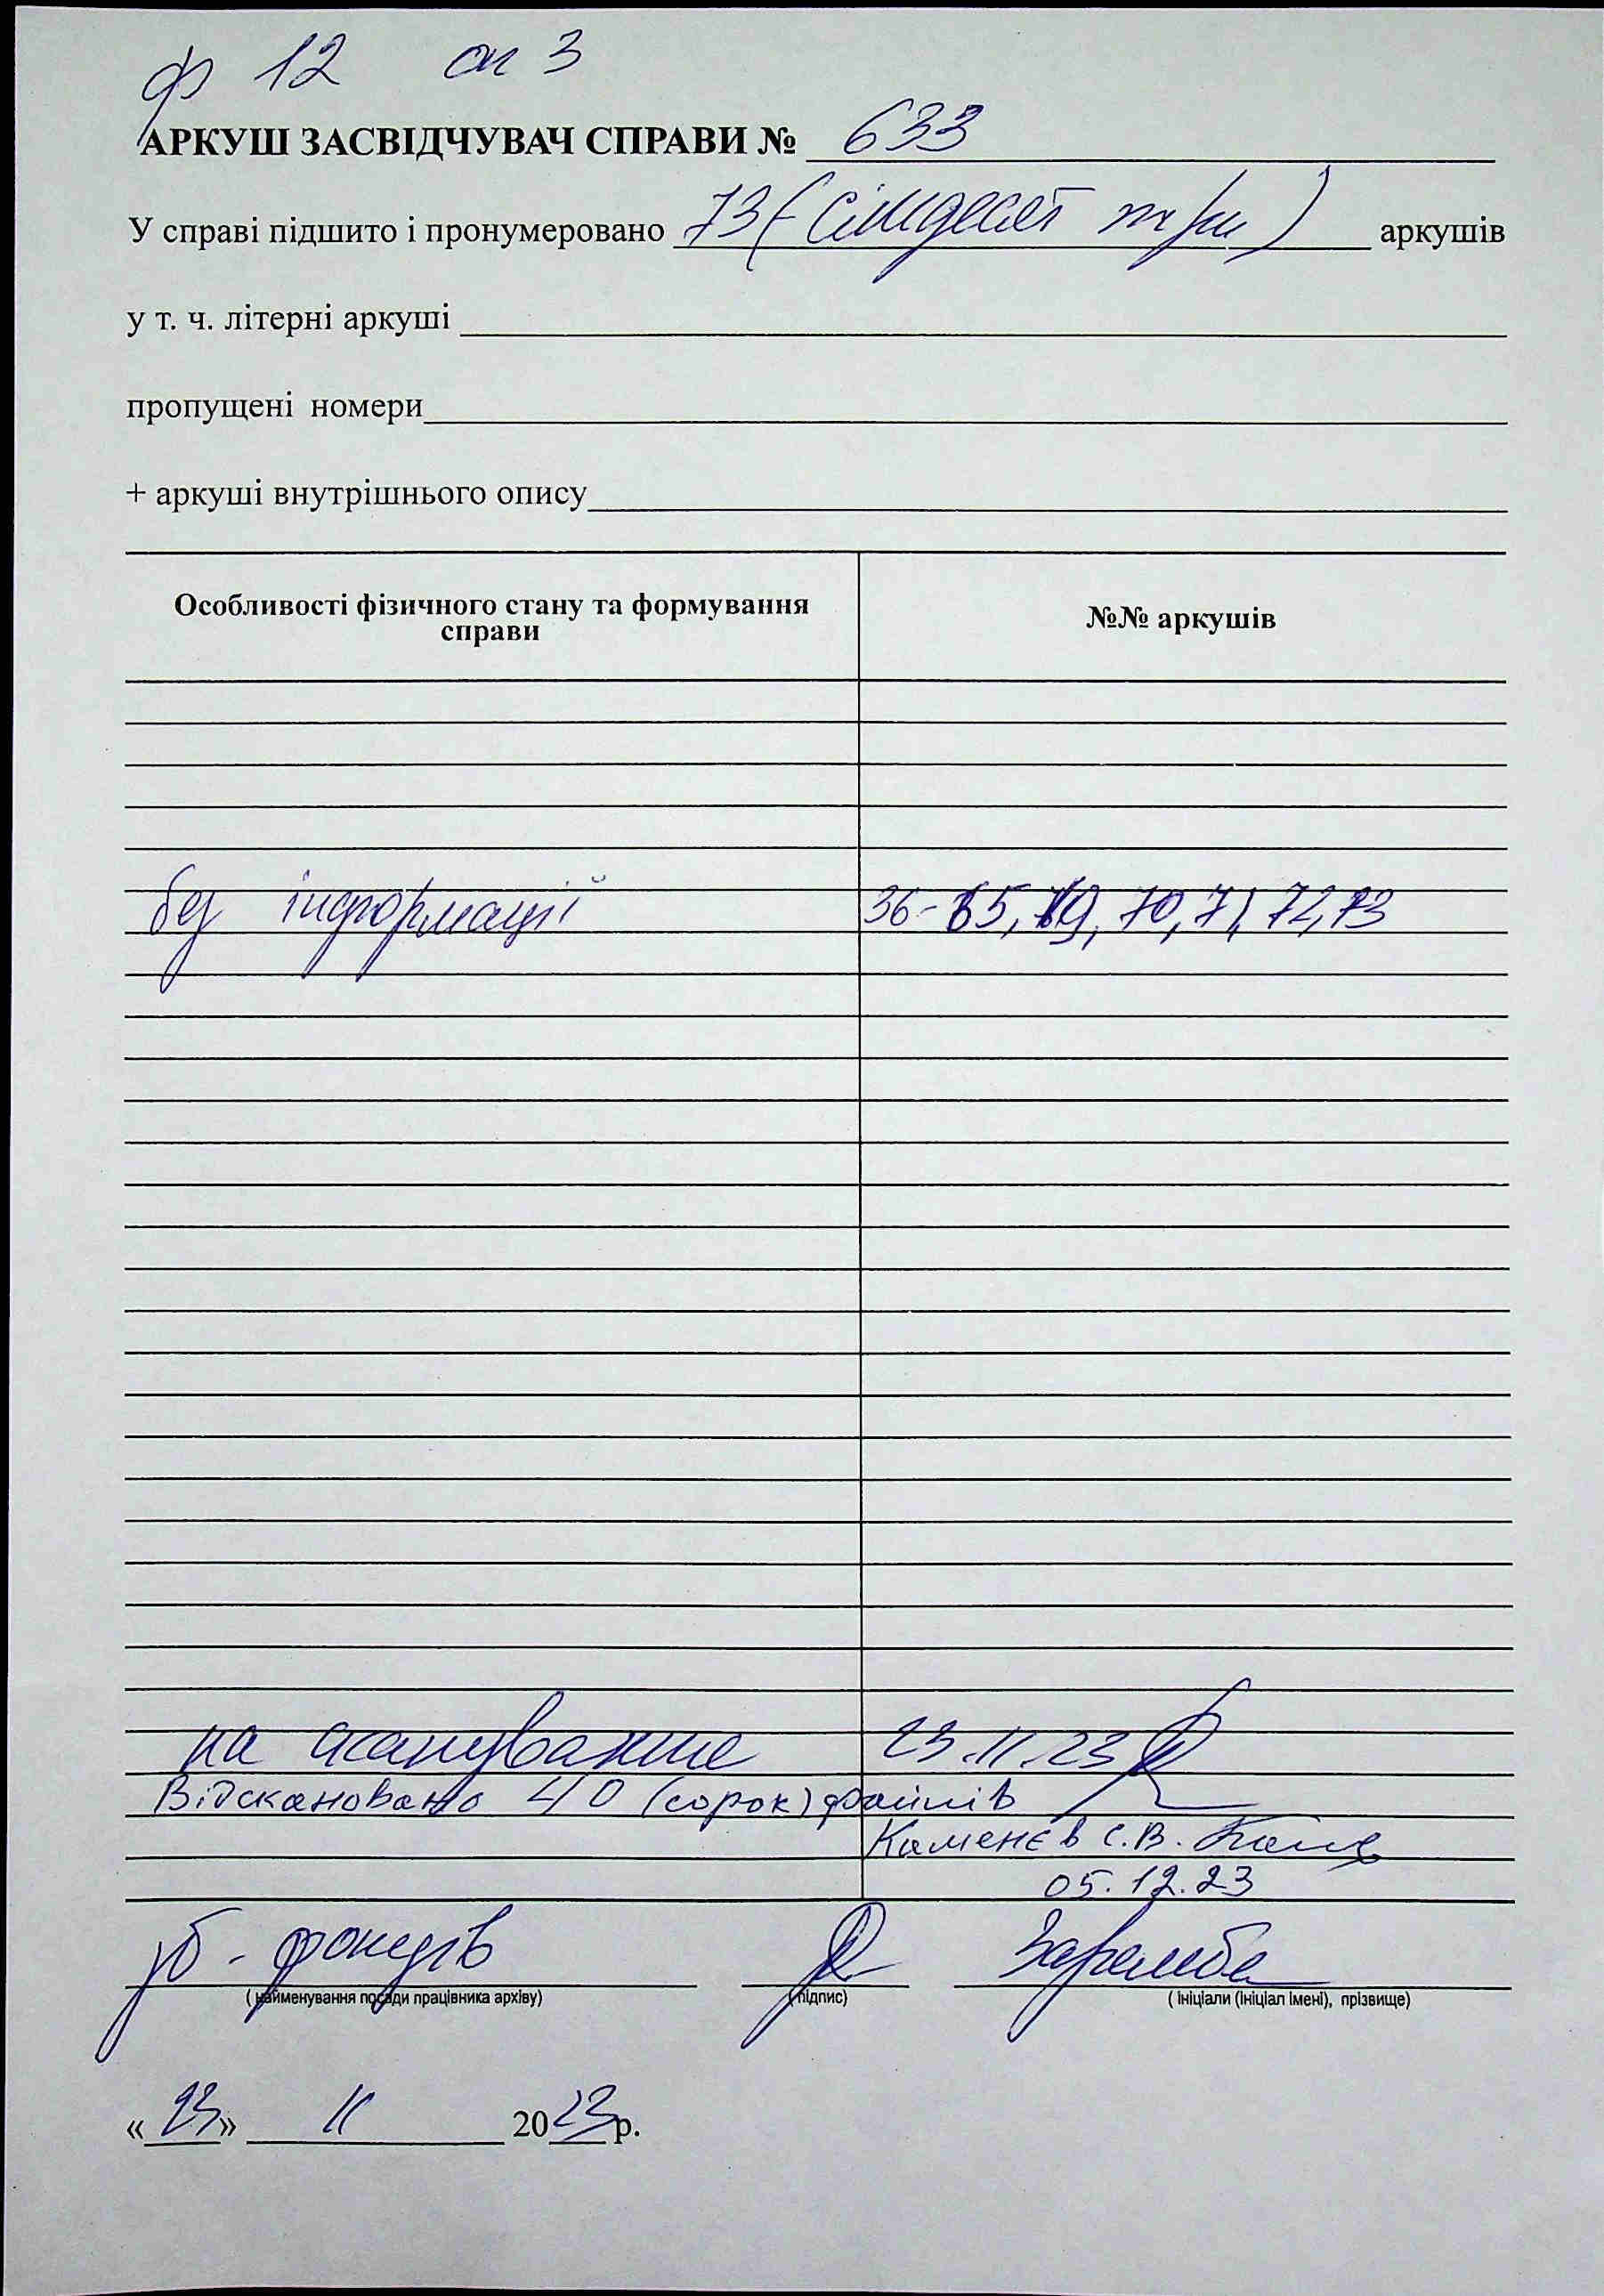 ф 12 оп 3
АРКУШ ЗАСВІДЧУВАЧ СПРАВИ № 633
У справі підшито і пронумеровано 73 (сімдесят три) аркушів
у т. ч. літерні аркуші
пропущені номери
+ аркуші внутрішнього опису
Особливості фізичного стану та формування справи №№ аркушів
без інформації 36-65, 69, 70, 71, 72, 73
на сканування 23.11.23
Відскановано 40 (сорок) файлів
Каменєв С.В.
05.12.23
фондів Заремба
( найменування посади працівника архіву) ( підпис) ( ініціали (ініціал імені), прізвище)
«23» 11 2023 р.